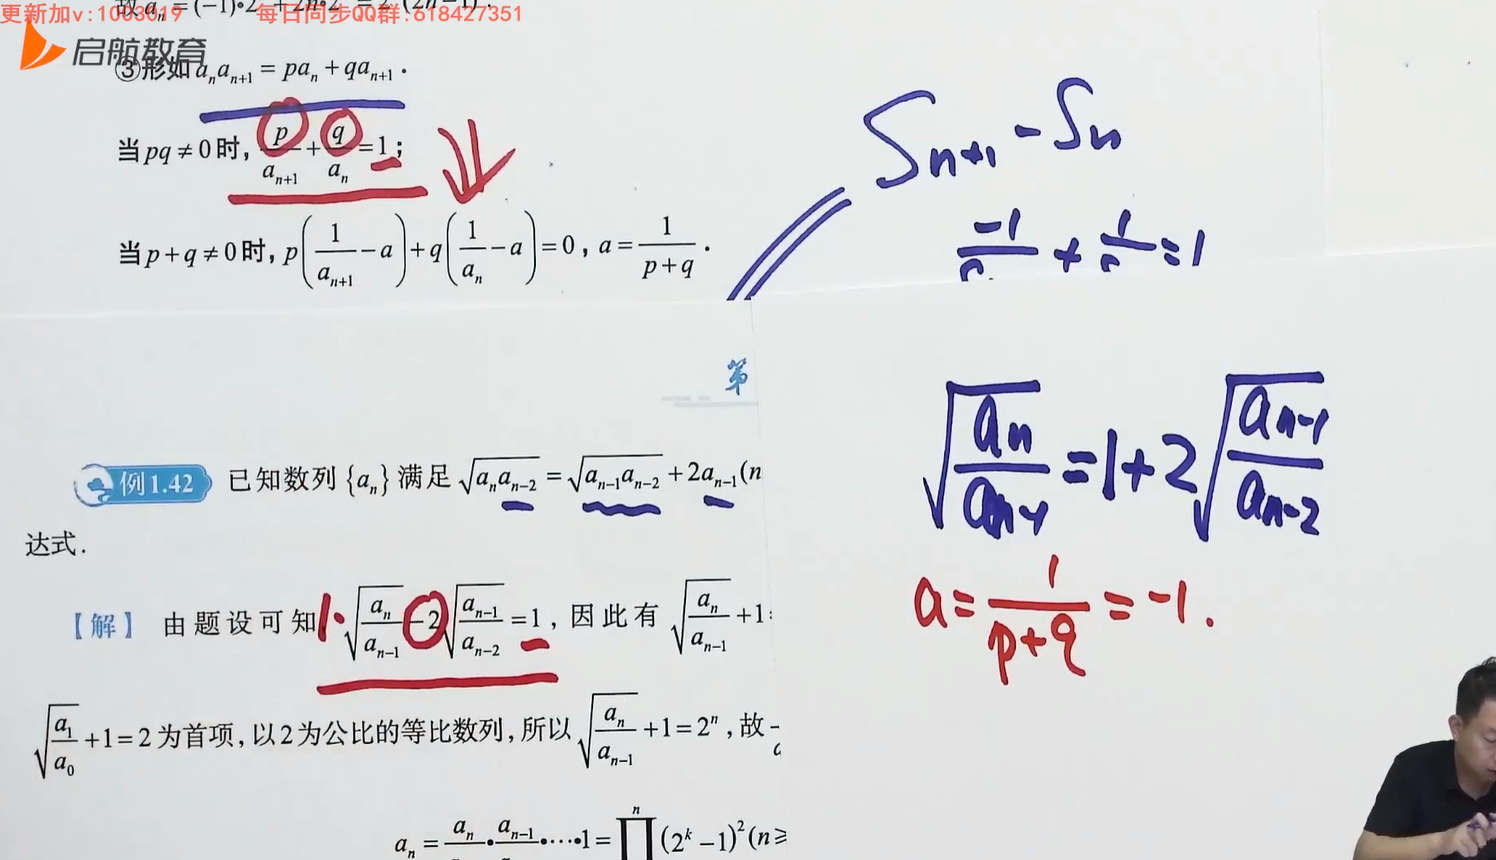 故 aₙ = (−1)•2 + 2n•2 = 2 (2n−1).
更新加v:1003019 每日同步QQ群:618427351
启航教育
③形如 aₙaₙ₊₁ = paₙ + qaₙ₊₁ .
当 pq ≠ 0 时, p/aₙ₊₁ + q/aₙ = 1 ;
当 p + q ≠ 0 时, p(1/aₙ₊₁ − a) + q(1/aₙ − a) = 0 , a = 1/(p+q) .
Sₙ₊₁ − Sₙ
−1/ + 1/ = 1
第
例 1.42 已知数列 {aₙ} 满足 √(aₙaₙ₋₂) = √(aₙ₋₁aₙ₋₂) + 2aₙ₋₁ (n
达式 .
【解】 由题设可知 1· √(aₙ/aₙ₋₁) − 2√(aₙ₋₁/aₙ₋₂) = 1 , 因此有 √(aₙ/aₙ₋₁) + 1
√(a₁/a₀) + 1 = 2 为首项, 以 2 为公比的等比数列, 所以 √(aₙ/aₙ₋₁) + 1 = 2ⁿ , 故
aₙ = aₙ/ • aₙ₋₁/ • ⋯ • 1 = ∏ⁿ (2ᵏ − 1)² (n ≥
√(aₙ/aₙ₋₁) = 1 + 2√(aₙ₋₁/aₙ₋₂)
a = 1/(p+q) = −1 .